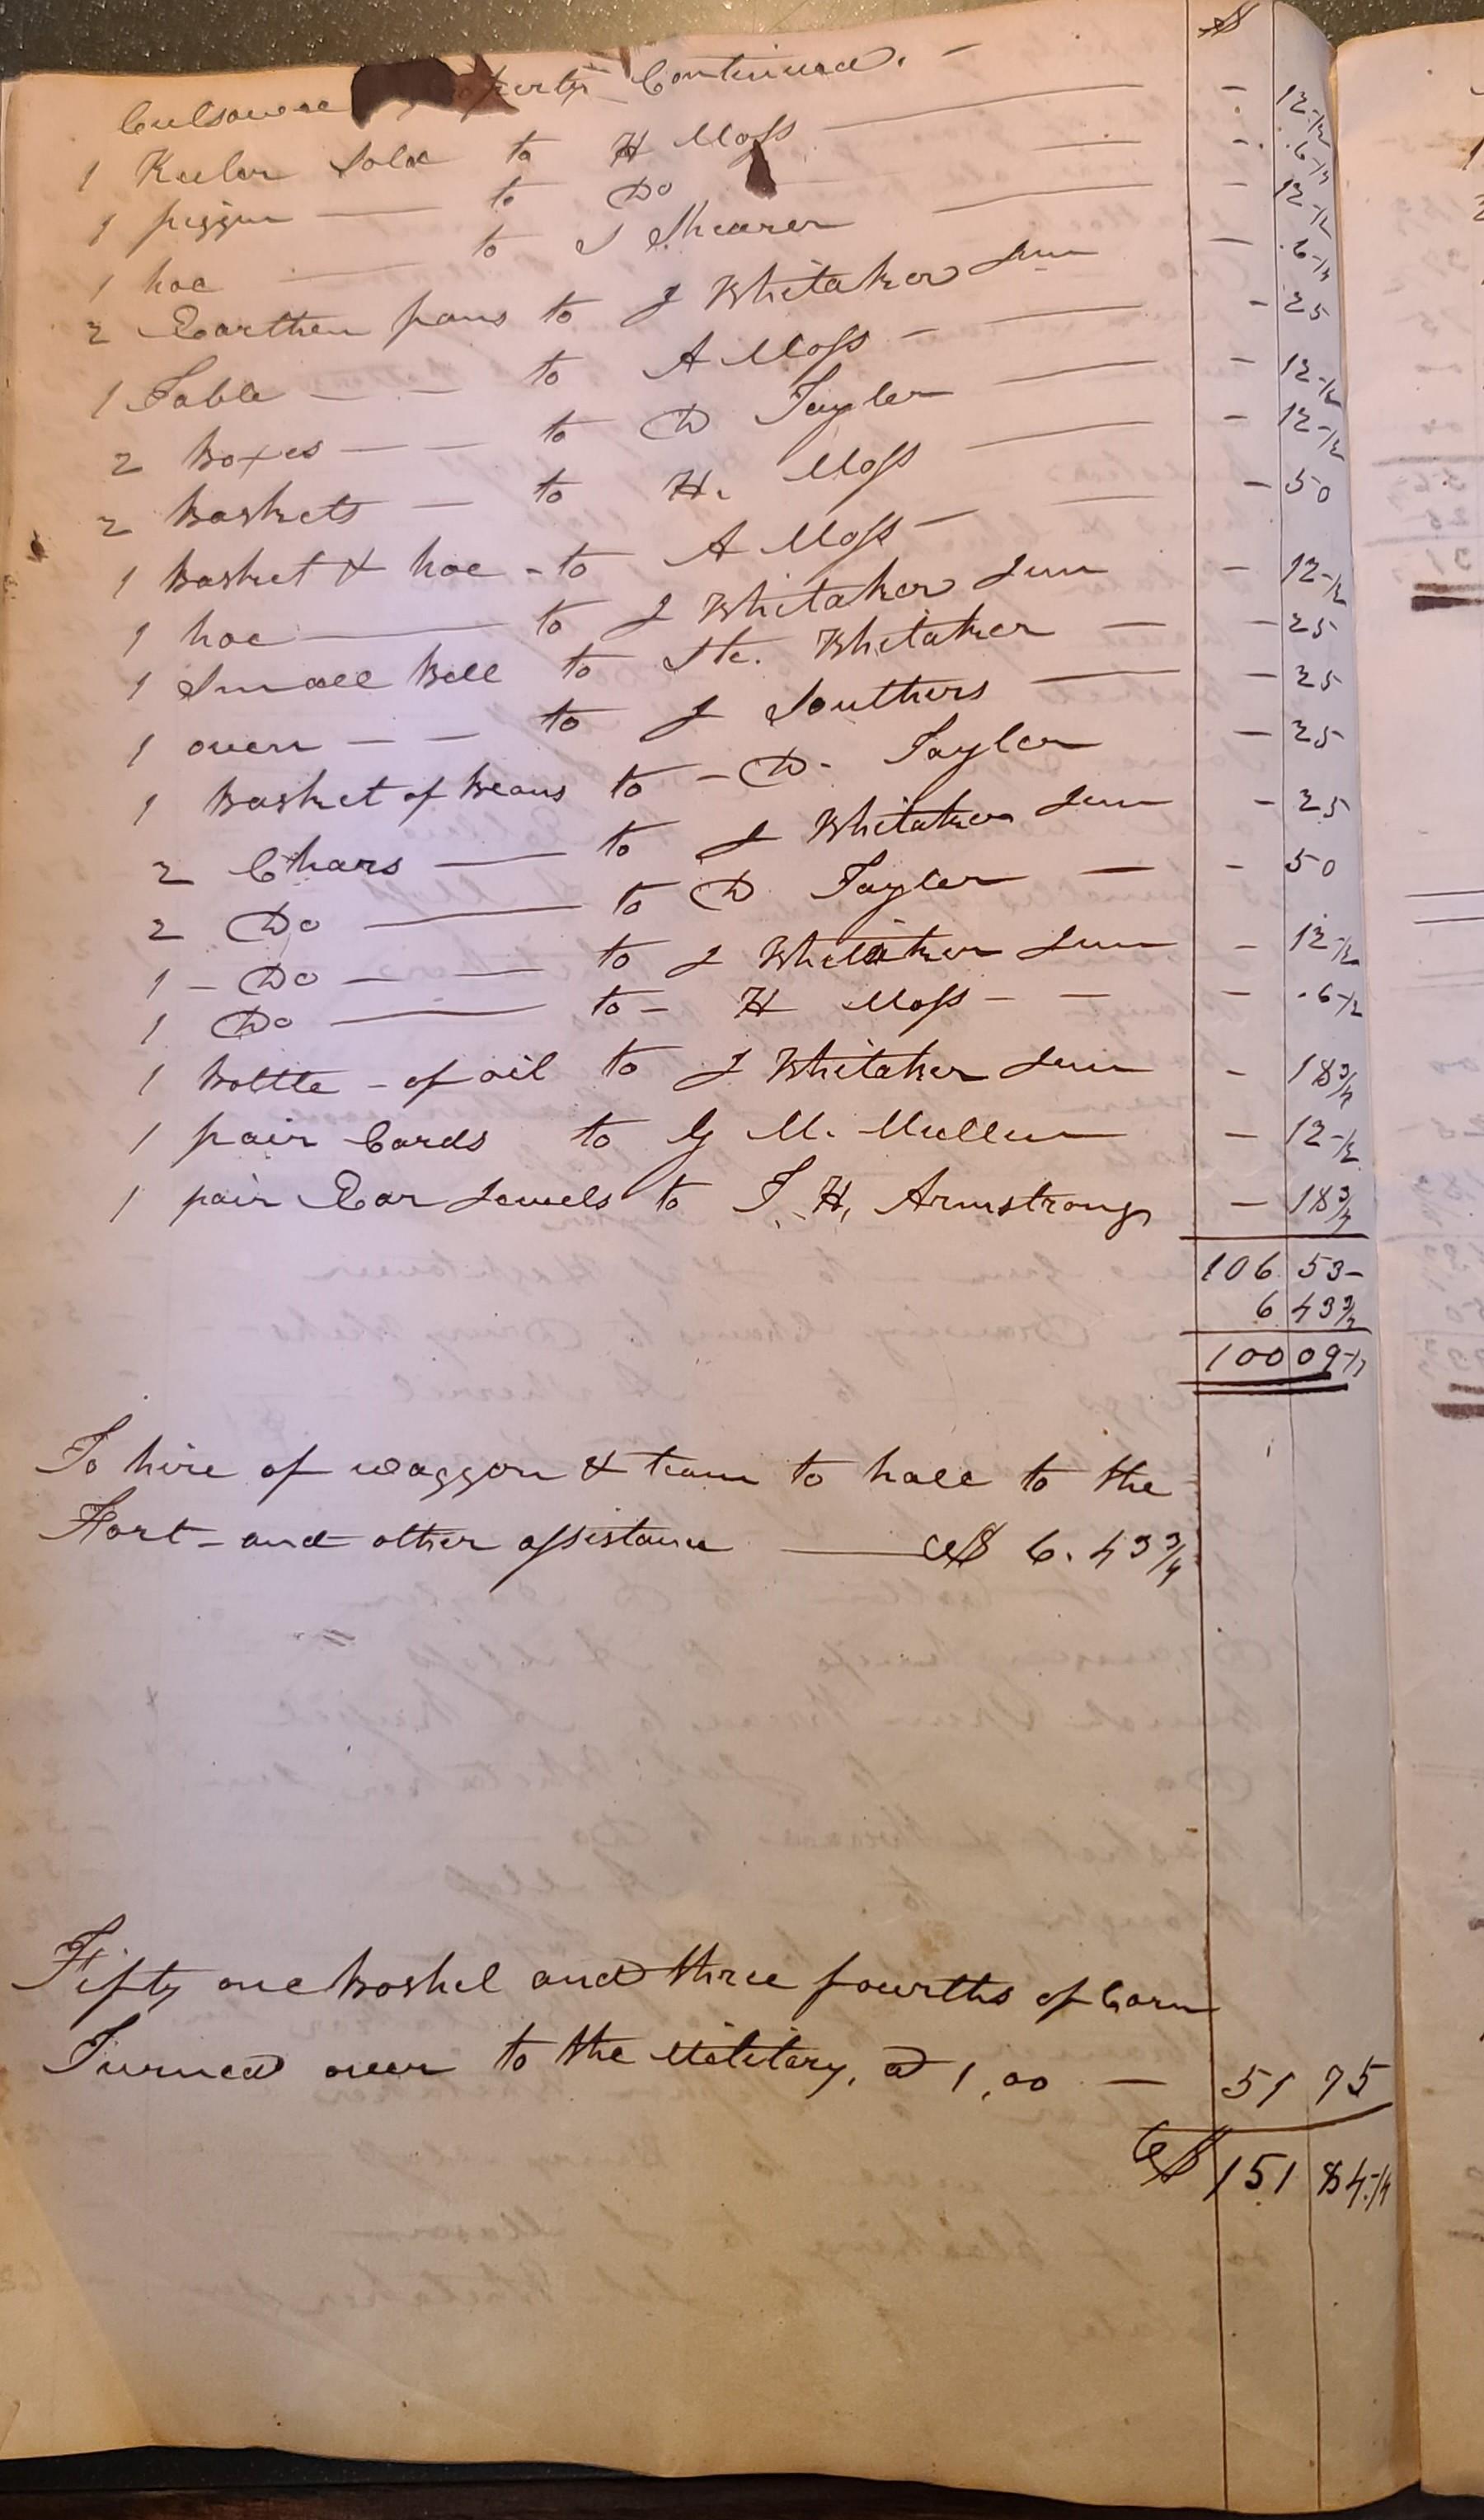 Culsowee property Continued. — $
1 Keeler Sold to H Moss — - 12½
1 piggin — to Do — - 6¼
1 hoe — to J Shearer — - 12½
2 Earthen pans to J Whitaker Jun — - 6¼
1 Table — — to A Moss — — - 25
2 Boxes — — to D Tayler — - 12½
2 Baskets — to H. Moss — - 12½
1 Basket & hoe - to A Moss — - 50
1 hoe — to J Whitaker Jun - 12½
1 Small Bell to Ste. Whitaker — - 25
1 oven — — to J Southers — - 25
1 Basket of Beans to - D - Tayler - 25
2 Chars — to J Whitaker Jun - 25
2 Do — to D Tayler — - 50
1 - Do — — to J Whitaker Jun - 12½
1 Do — to - H Moss - — - 6½
1 bottle - of oil to J Whitaker Jun - 18¾
1 pair Cards to G M. Mullen - 12½
1 pair Ear Jewels to J. H. Armstrong - 18¾
106 53-
6 43¾
100 09¼
To hire of waggon & team to hall to the
Fort - and other assistance — $ 6.43¾
Fifty one boshel and three fourths of Corn
Turned over to the Militery, @ 1,00 — 51 75
$ 151 84¼